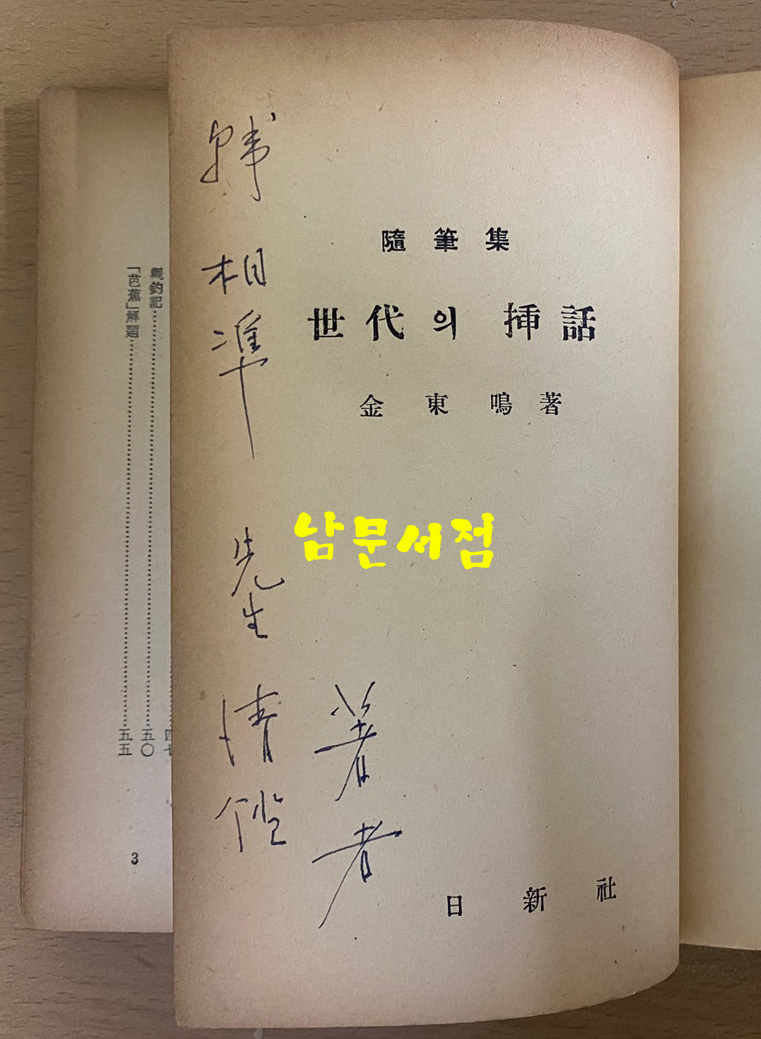 隨筆集
世代의 揷話
金東鳴著
日新社
韓相準 先生 淸鑑
著者
남문서점
觀釣記……五〇
「芭蕉」解題……五五
3